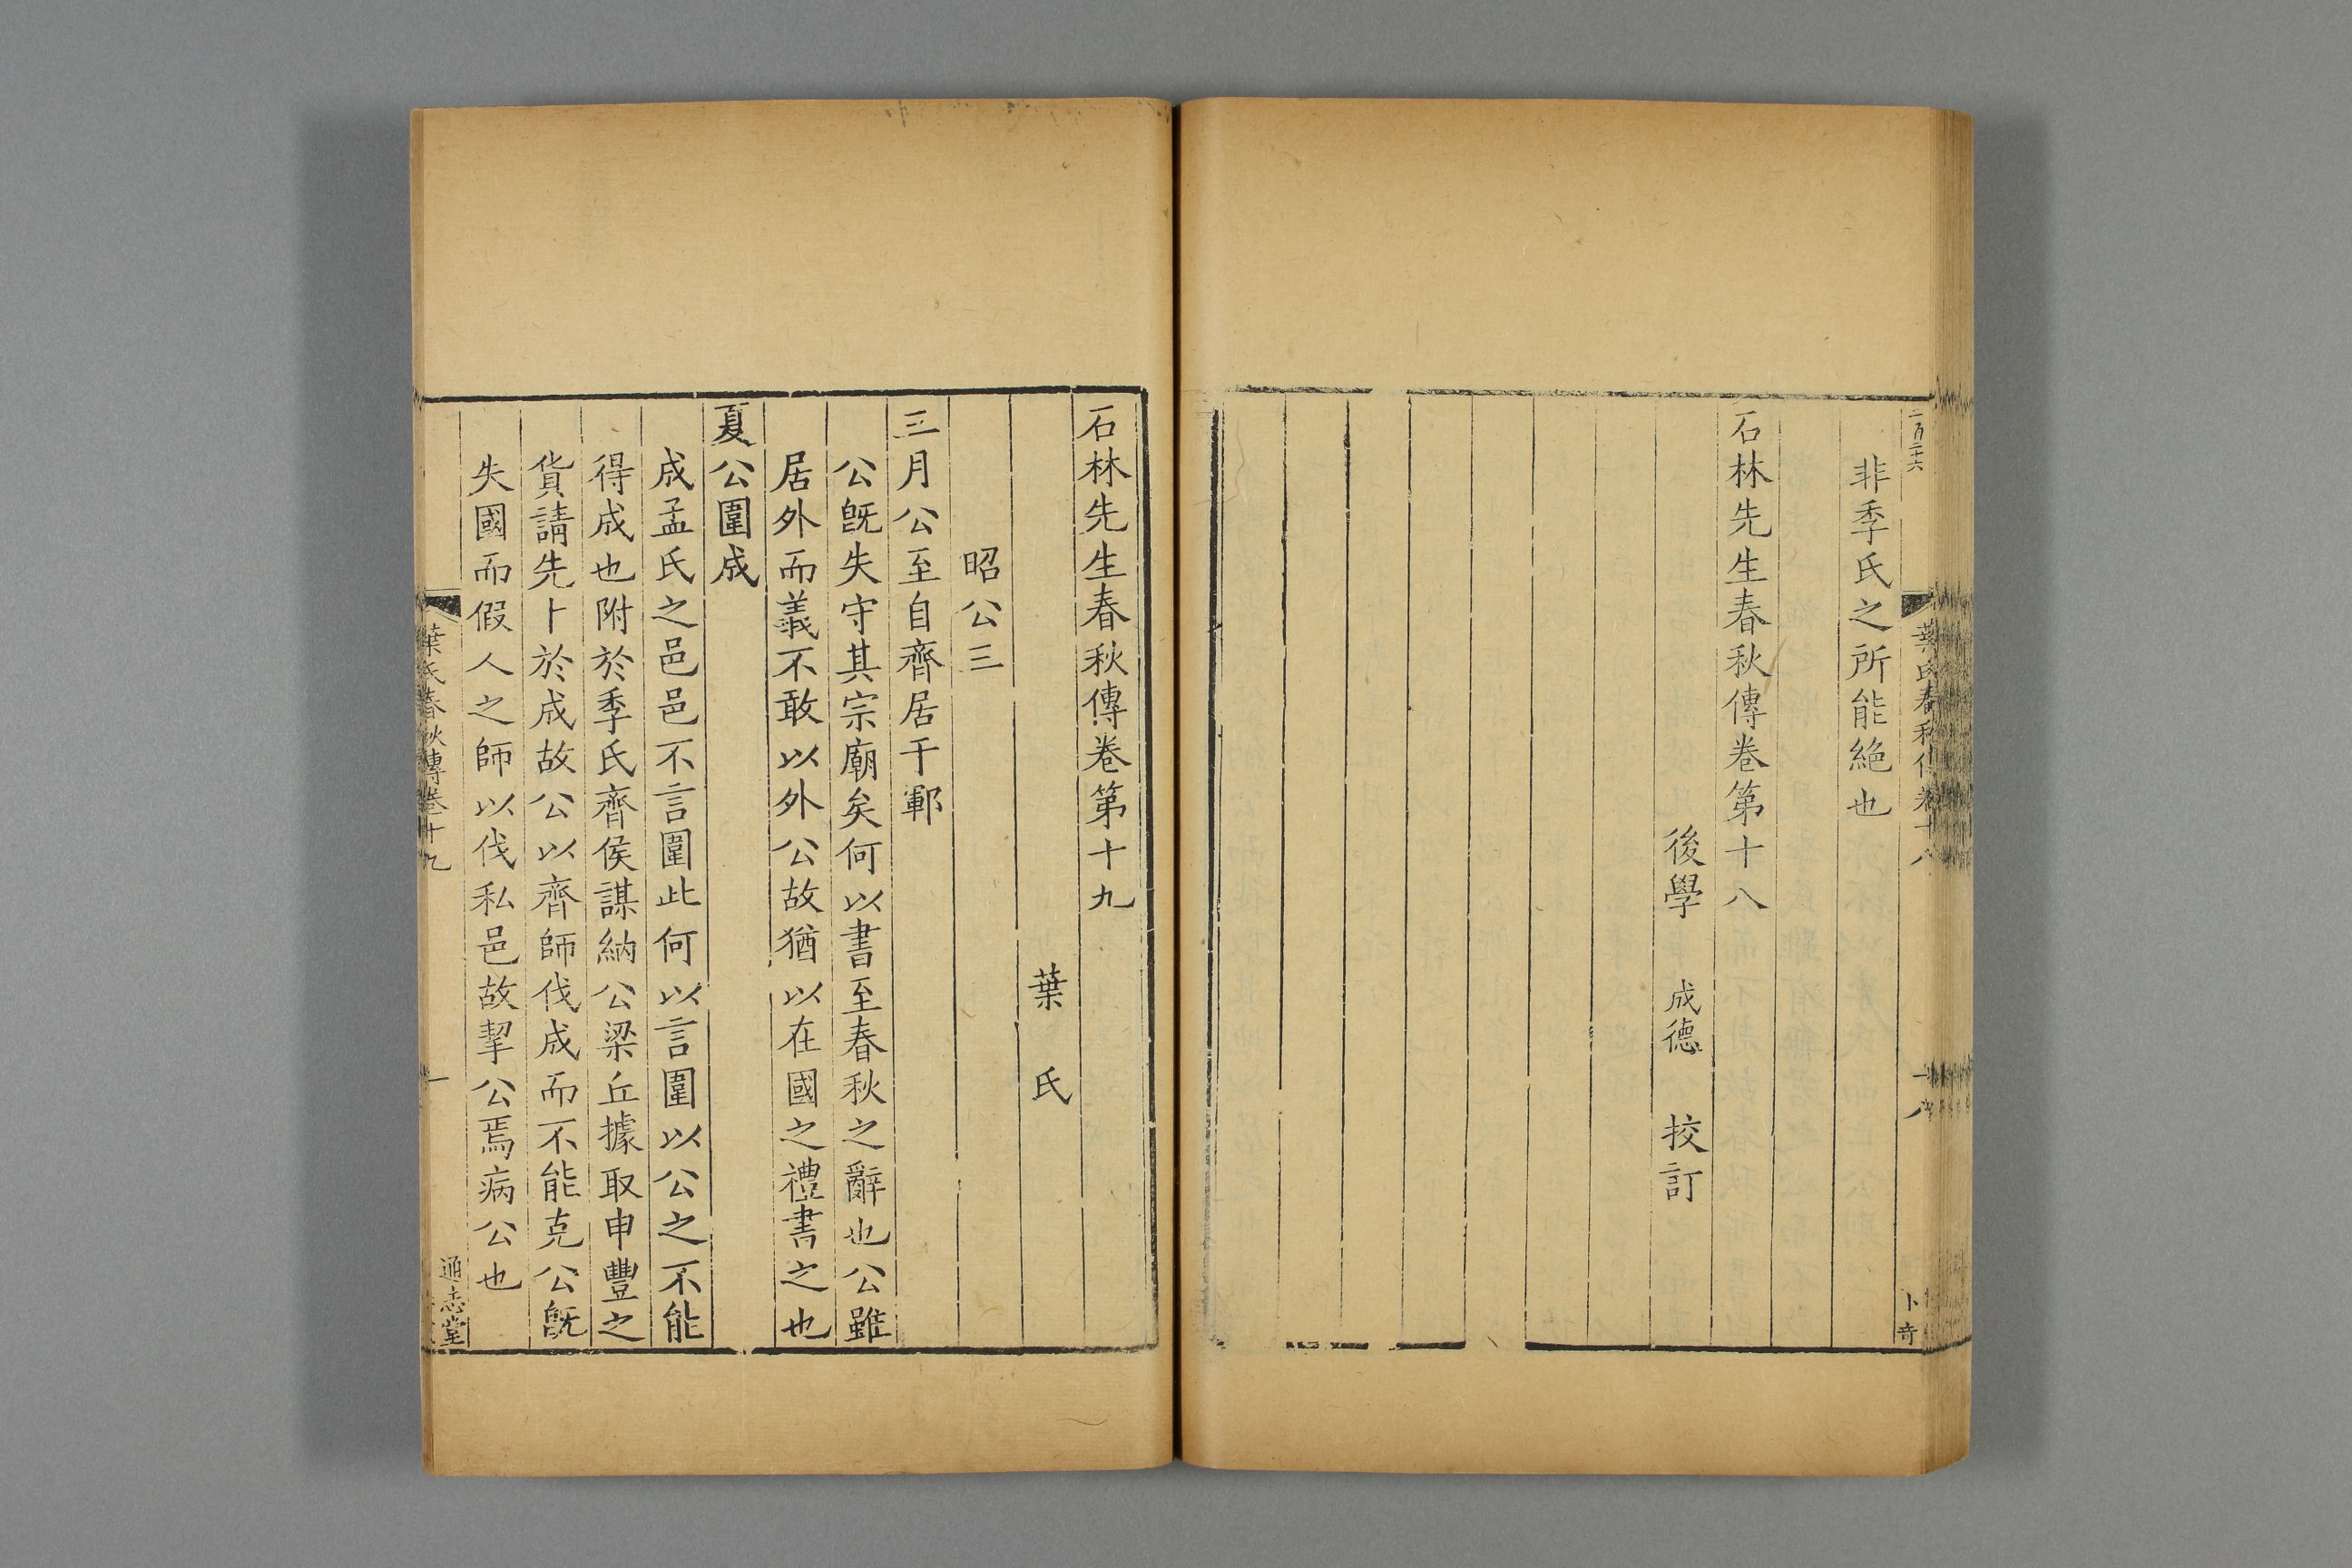 二百二十六
葉氏春秋傳卷十八
十八
卜奇
非季氏之所能絶也
石林先生春秋傳卷第十八
後學 成德 校訂
石林先生春秋傳卷第十九
葉 氏
昭公三
三月公至自齊居于鄆
公旣失守其宗廟矣何以書至春秋之辭也公雖
居外而義不敢以外公故猶以在國之禮書之也
夏公圍成
成孟氏之邑邑不言圍此何以言圍以公之不能
得成也附於季氏齊侯謀納公梁丘據取申豐之
貨請先卜於成故公以齊師伐成而不能克公旣
失國而假人之師以伐私邑故挈公焉病公也
葉氏春秋傳卷十九
一
通志堂